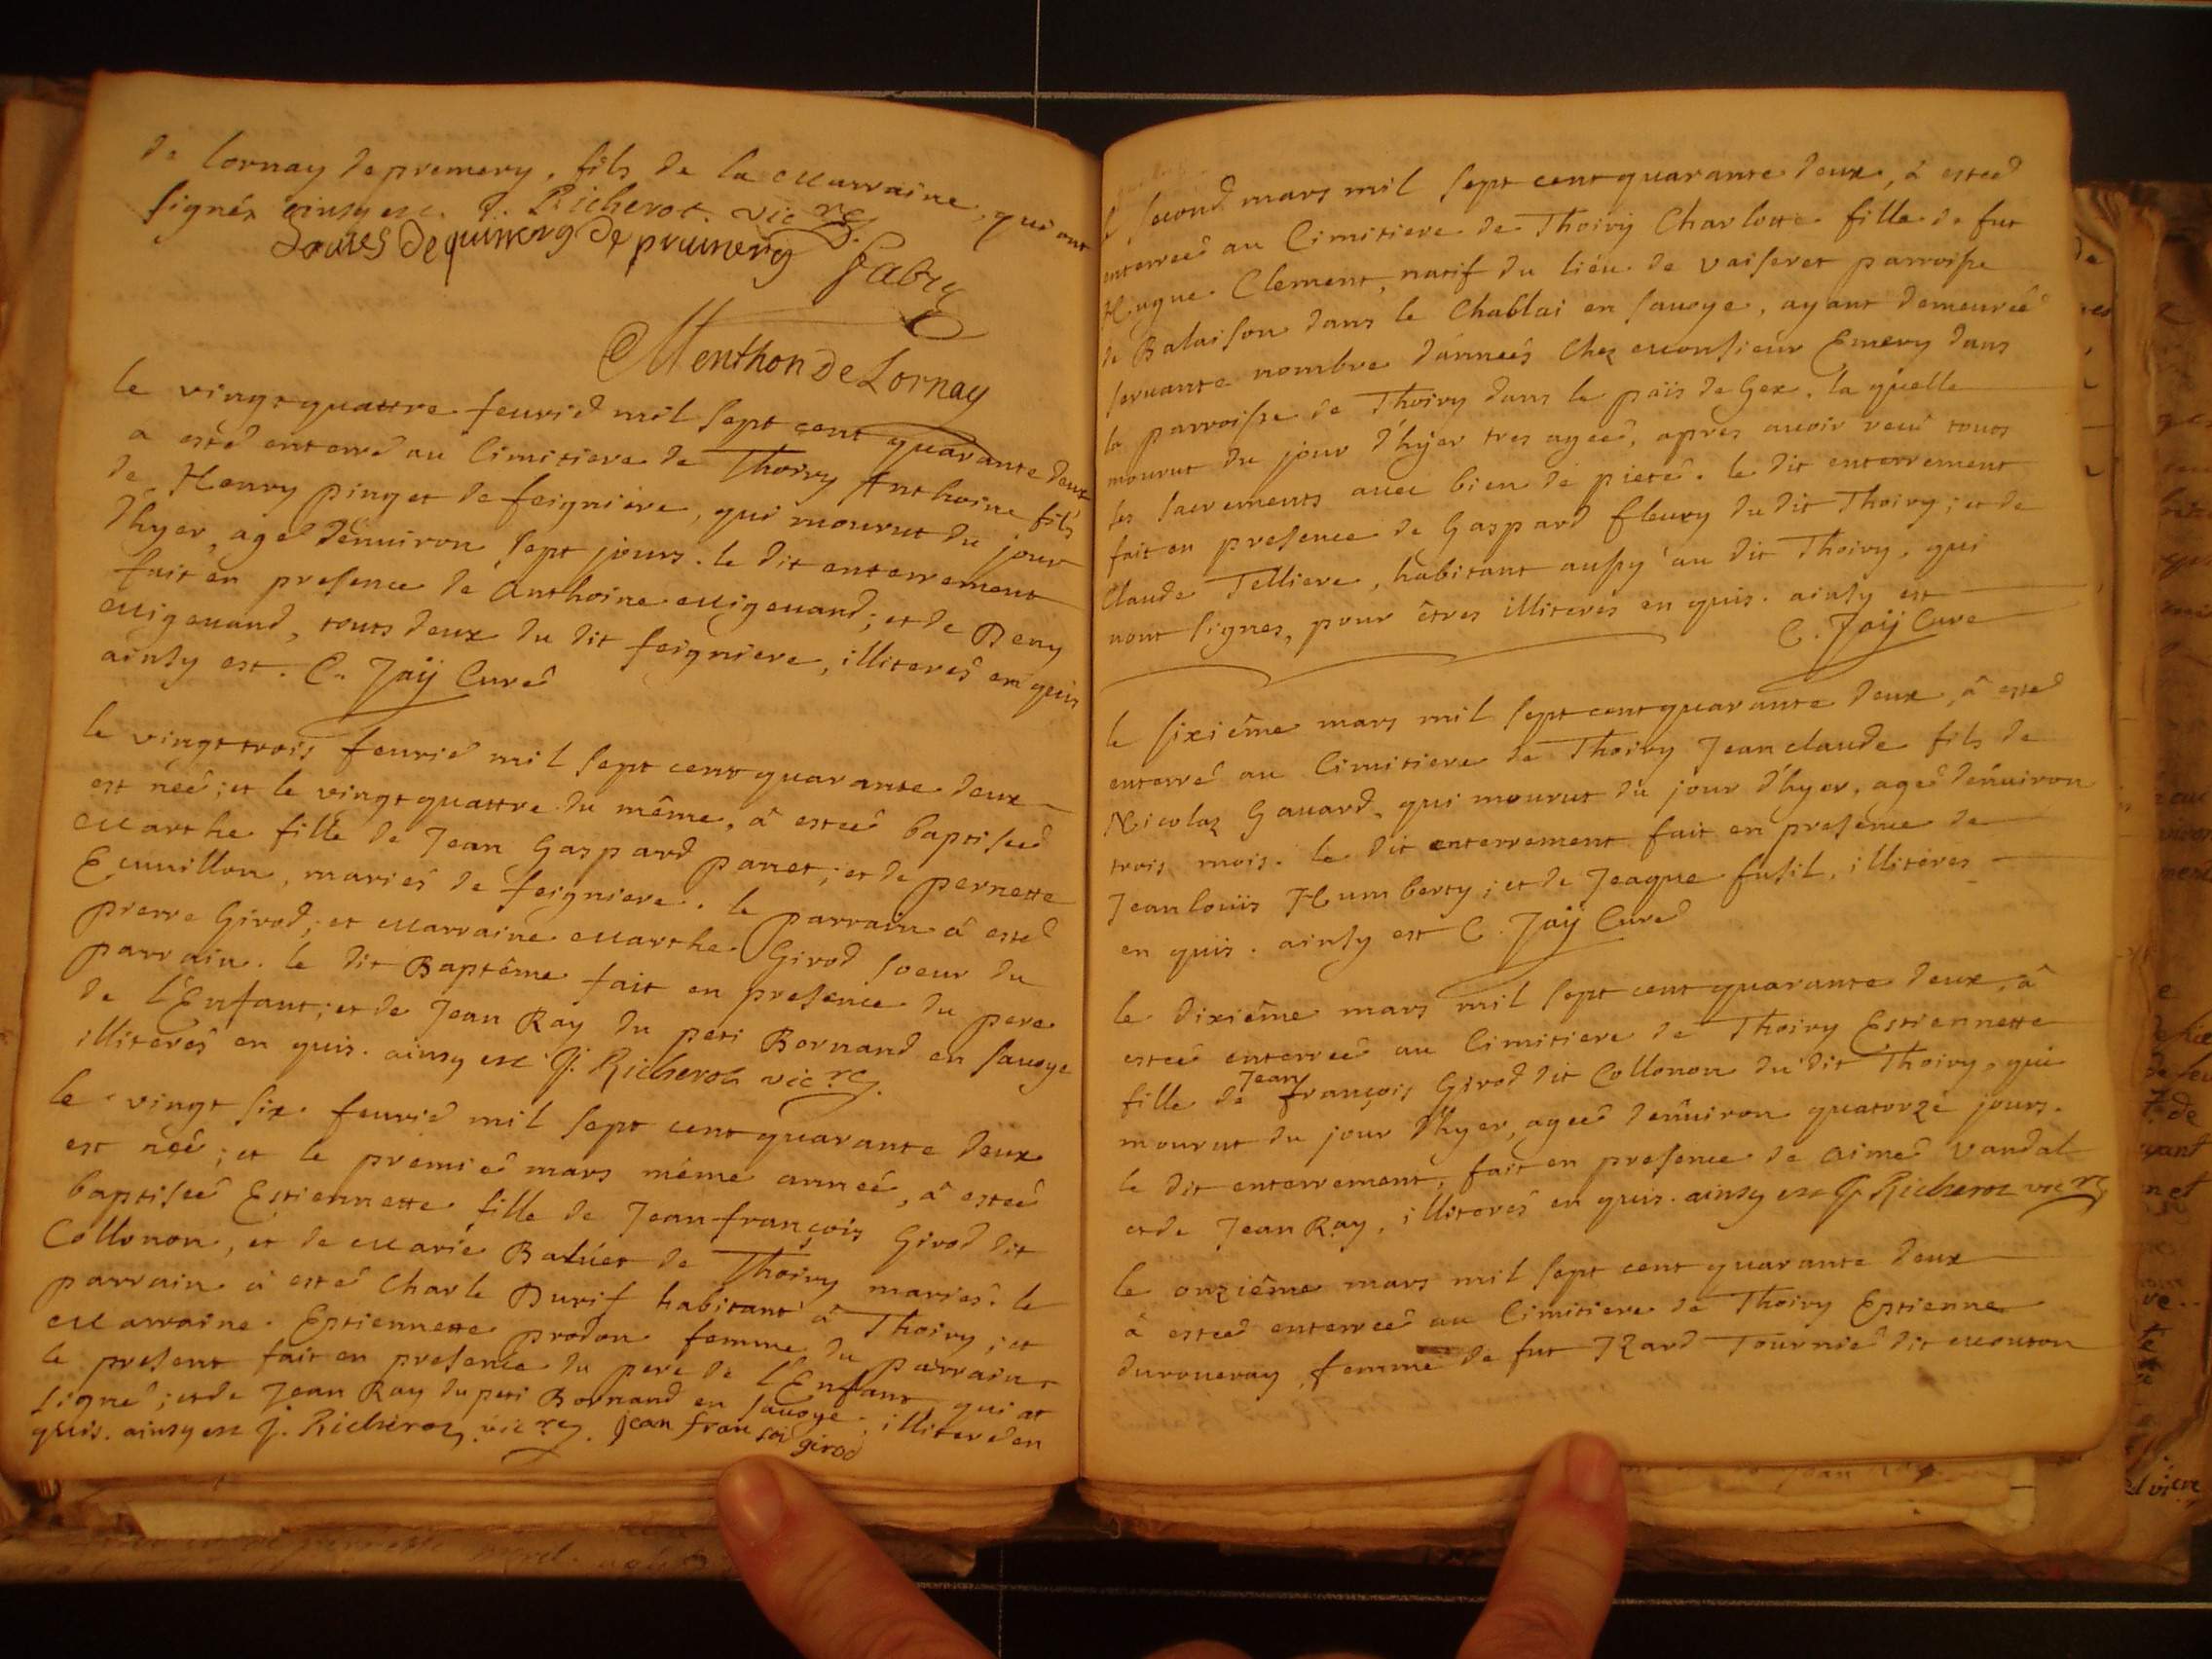 de Lornay de premery, fils de la Marraine, qui ont
signés ainsy est. J. Richerot vic.re
Louies De quinerg De prumery
Fabry
Menthon De Lornay
le vingt quattre feurié mil sept cent quarante deux
a esté enterré au Cimitiere de Thoiry Anthoine fils
de Henry pinget de feigniere, qui mourut du jour
d'hyer, agé dénuiron sept jours. le dit enterrement
fait en presence de Anthoine Migeuand; et de Deny
Migeuand, touts deux du dit feigniere, illiterés en quis
ainsy est. C. Jaÿ Curé
le vingt trois feurié mil sept cent quarante deux
est néé; et le vingt quattre du même, à estéé baptiséé
Marthe fille de Jean Gaspard panet; et de pernette
Ecuuillon, mariés de feigniere. le parrain à esté
pierre Girod; et Marraine Marthe Girod soeur du
parrain. le dit Baptême fait en presence du pere
de L'Enfant; et de Jean Ray du peti Bornand en sauoye
illiterés en quis. ainsy est J. Richerot vic.re
le vingt six feurié mil sept cent quarante deux
est néé; et le premié mars même anneé, à estéé
baptiséé Estiennette fille de Jean françois Girod dit
Collonon, et de Marie Baluet de Thoiry mariés. le
parrain à esté Charle Burif habitant à Thoiry; et
Marraine Estiennette prodon femme du parrain
le present fait en presence du pere de L'Enfant qui at
signé; et de Jean Ray du peti Bornand en sauoye. illiteré en
quis. ainsy est J. Richerot vic.re jean fransoi girod
le second mars mil sept cent quarante deux, à estéé
enterréé au Cimitiere de Thoiry Charlotte fille de fut
Hugue Clement, natif du liéu de vaiseret parroisse
de Balaison dans le Chablai en sauoye, ayant demeuréé
seruante nombre d'anneés Chez Monsieur Emery dans
la parroisse de Thoiry dans le païs de Gex, la quelle
mourut du jour d'hÿer tres ageé, apres auoir reçu touts
les sacrements auec bien de pieté. le dit enterrement
fait en presence de Gaspard fleury du dit Thoiry; et de
Claude Telliere, habitant aussy au dit Thoiry, qui
nont signes, pour êtres illiterés en quis. ainsy est
C. Jaÿ Cure
le sixiême mars mil sept cent quarante deux, à esté
enterré au Cimitiere de Thoiry Jean claude fils de
Nicolaz Gauard, qui mourut du jour d'hyer, agé dénuiron
trois mois. le dit enterrement fait en presence de
Jean loüis Humberty; et de Jeaque fusil, illiteres
en quis. ainsy est C. Jaÿ Curé
le dixiême mars mil sept cent quarante deux, à
estéé enterréé au Cimitiere de Thoiry Estiennette
fille de Jean françois Girod dit Collonon du dit Thoiry, qui
mourut du jour d'hyer, ageé dénuiron quatorze jours.
le dit enterrement, fait en presence de aimé vandal
et de Jean Ray, illiterés en quis. ainsy est J. Richerot vic.re
le onziême mars mil sept cent quarante deux
à estéé enterréé au Cimitiere de Thoiry Estienne
duroueray, femme de fut IZard Tournié dit Mouton